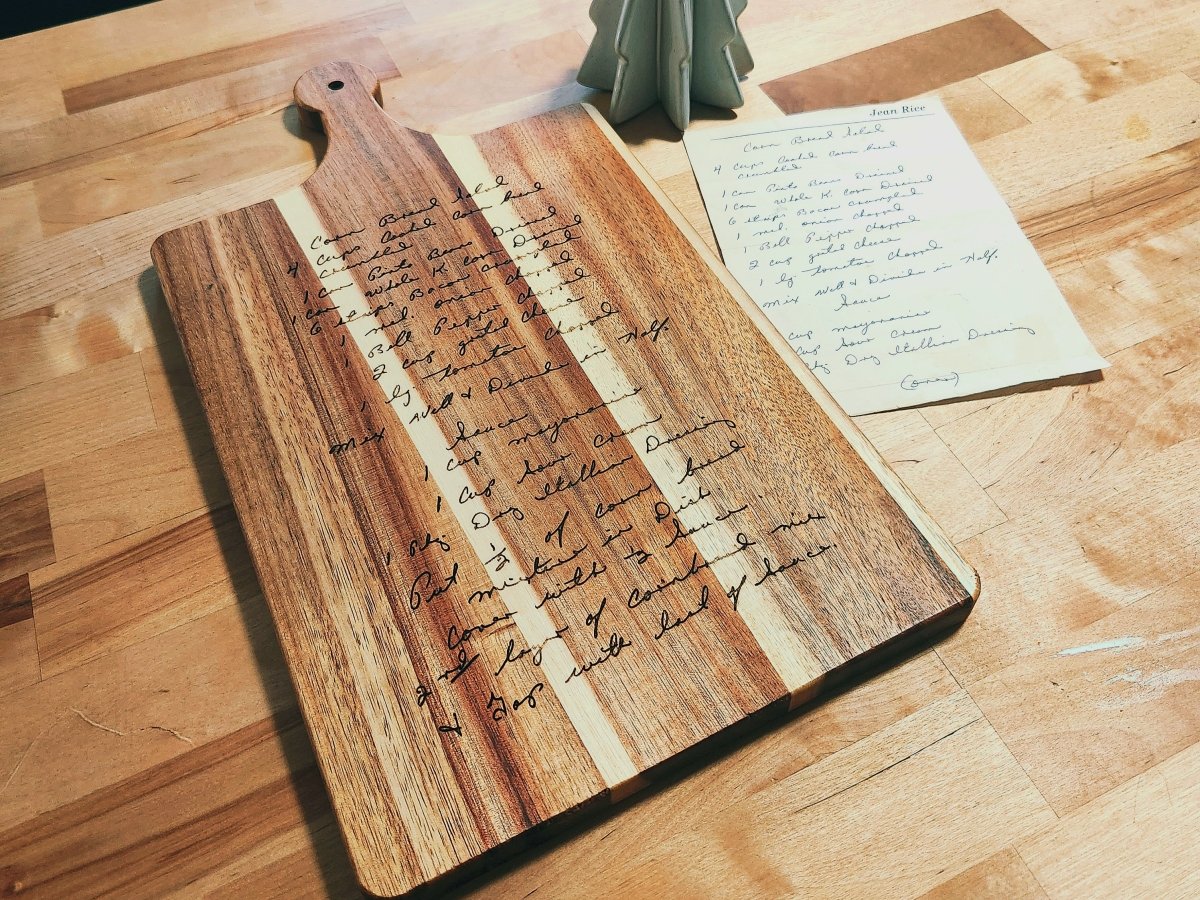 Corn Bread Salad
4 Cups Cooked Corn bread
crumbled
1 can Pinto Bans Drained
1 can Whole K. Corn Drained
6 strips Bacon crumpled
1 med. onion chopped
1 Bell Pepper chopped
2 cup grated cheese
1 lg. tomatoe chopped
Mix well & Divide in Half.
Sauce
1 cup mayonaise
1 cup sour cream
1 Pkg Dry Itallian Dressing
Put 1/2 of corn bread
mixture in Dish
Cover with 1/2 sauce
2nd layer of cornbread mix
& Top with last of sauce.
Jean Rice
Corn Bread Salad
4 Cups Cooked Corn bread
crumbled
1 can Pinto Bans Drained
1 can Whole K. Corn Drained
6 strips Bacon crumpled
1 med. onion chopped
1 Bell Pepper chopped
2 cup grated cheese
1 lg. tomatoe chopped
Mix well & Divide in Half.
Sauce
cup mayonaise
cup sour cream
Pkg Dry Itallian Dressing
(over)